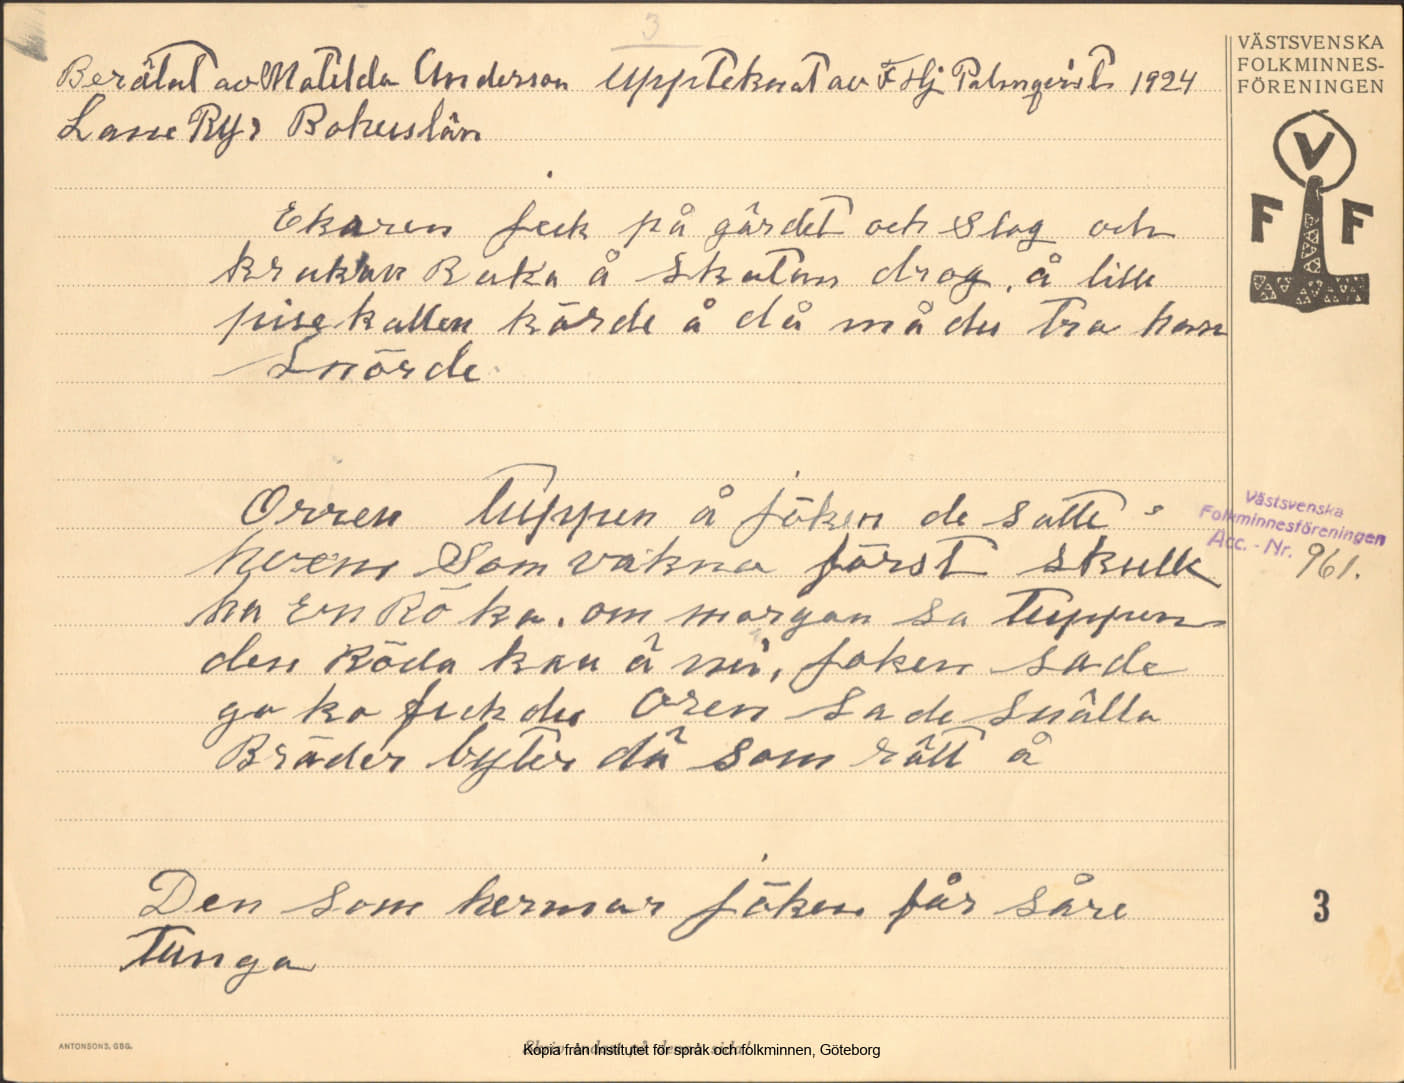 3
Berätat av Matilda Anderson Uppteknat av F Hj Palmqvist 1924
Lane Ryr Bohuslän
Ekaren feck på gärdet och Slog och
krakan Raka å Skatan drog, å lille
pisekallen körde å då må du tra han
Snörde
Orren tuppen å jöken de satte
hvem Som vakna först skulle
ha En Rö ko. om morgon sa tuppen
den Röda kan å min, joken sade
go ko feck du Oren Sade Snälla
Bräder byter då som rätt å
Den som hermar jöken får såre
tunga
VÄSTSVENSKA
FOLKMINNES-
FÖRENINGEN
V
F F
Västsvenska
Folkminnesföreningen
Acc. - Nr. 961.
3
ANTONSONS, GBG.
Kopia från Institutet för språk och folkminnen, Göteborg